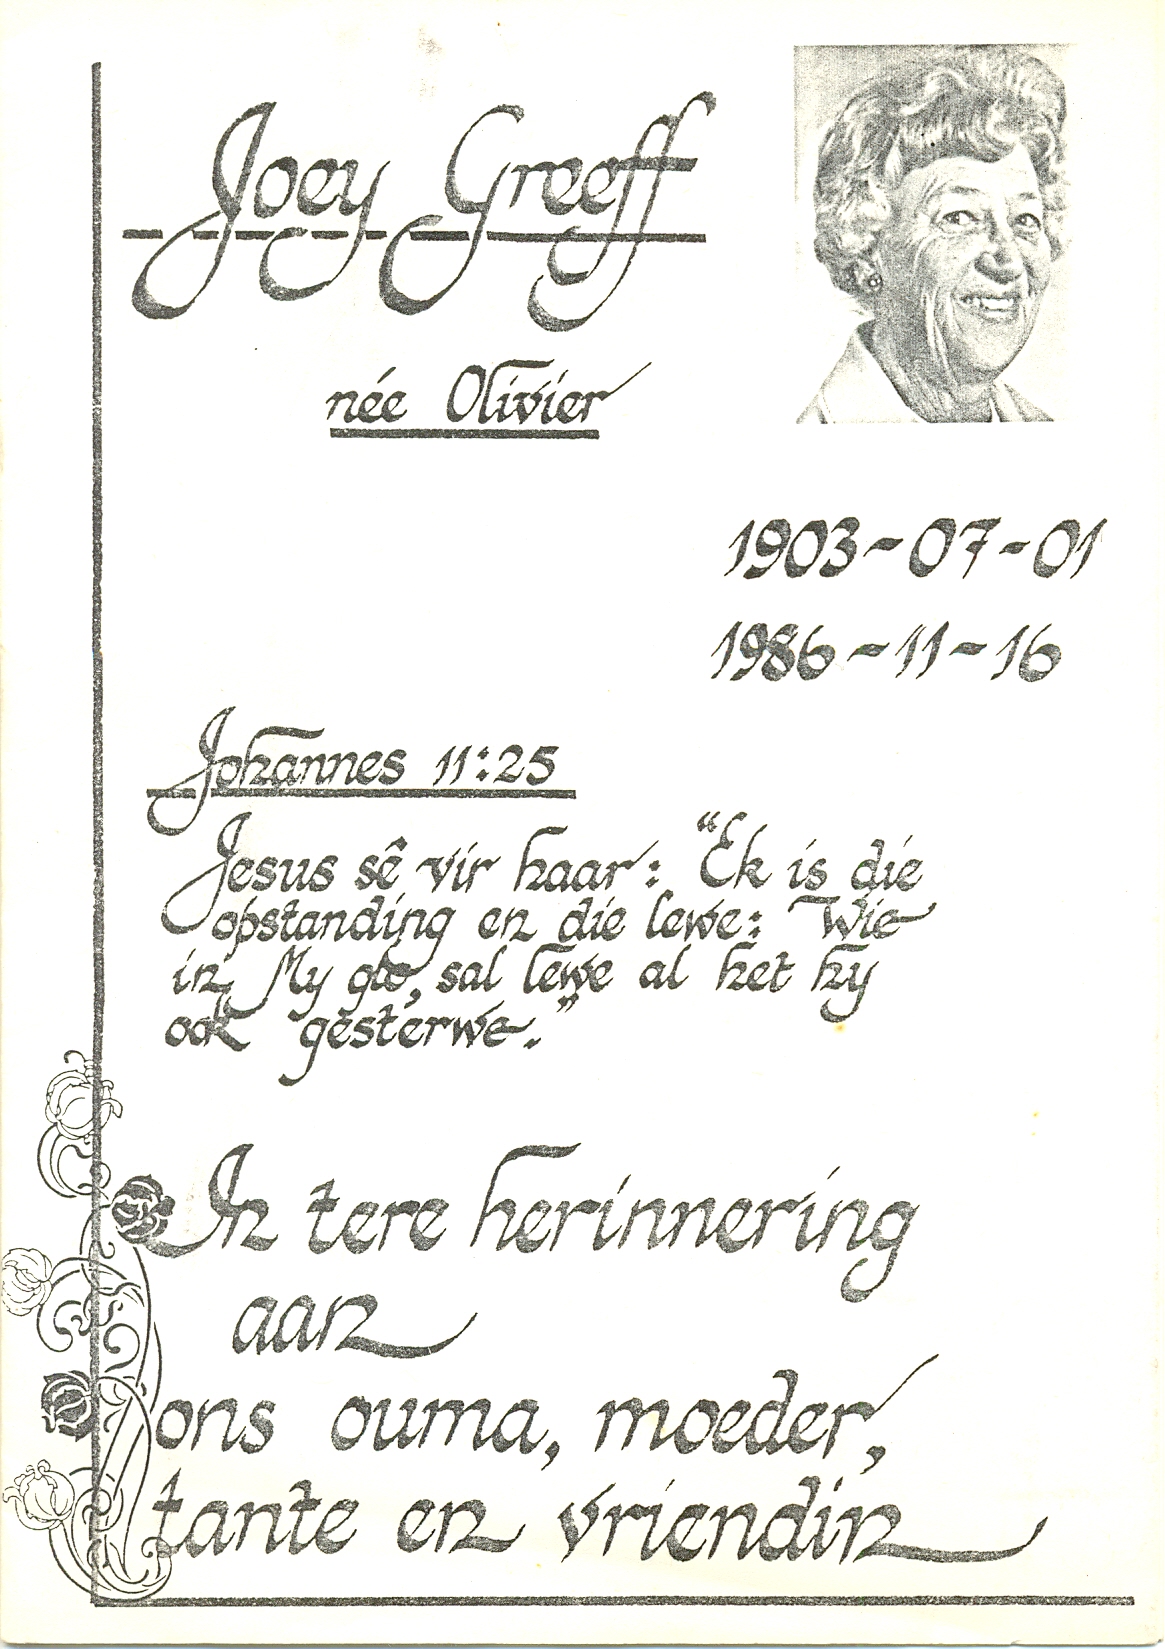 Joey Greeff
née Olivier
1903-07-01
1986-11-16
Johannes 11:25
Jesus sê vir haar: "Ek is die
opstanding en die lewe: Wie
in My glo, sal lewe al het hy
ook gesterwe."
In tere herinnering
aan
ons ouma, moeder,
tante en vriendin